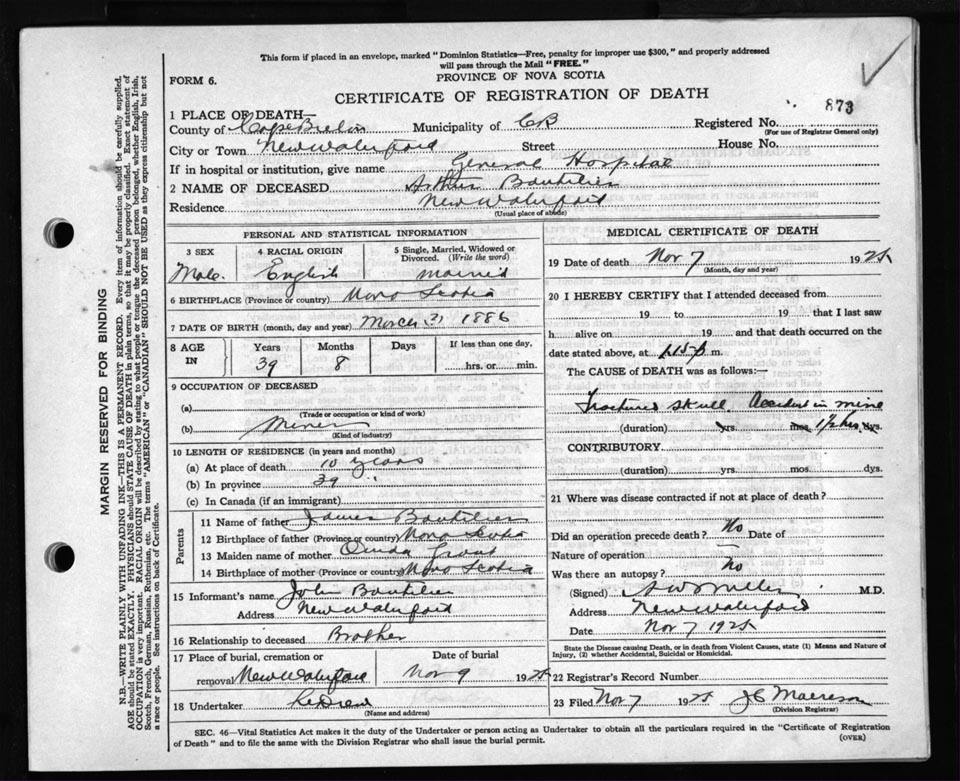 This form if placed in an envelope, marked "Dominion Statistics—Free, penalty for improper use $300," and properly addressed
will pass through the Mail "FREE."
FORM 6.
PROVINCE OF NOVA SCOTIA
CERTIFICATE OF REGISTRATION OF DEATH
873
1 PLACE OF DEATH—
County of Cape Breton Municipality of CB Registered No.
(For use of Registrar General only)
City or Town New Waterford Street House No.
If in hospital or institution, give name General Hospital
2 NAME OF DECEASED Arthur Boutilier
Residence New Waterford
(Usual place of abode)
PERSONAL AND STATISTICAL INFORMATION
3 SEX 4 RACIAL ORIGIN 5 Single, Married, Widowed or Divorced. (Write the word)
Male English Married
6 BIRTHPLACE (Province or country) Nova Scotia
7 DATE OF BIRTH (month, day and year) March 31 1886
8 AGE IN Years Months Days If less than one day,
39 8 hrs. or min.
9 OCCUPATION OF DECEASED
(a)
(Trade or occupation or kind of work)
(b) Miner
(Kind of industry)
10 LENGTH OF RESIDENCE (in years and months)
(a) At place of death 10 years
(b) In province 39 "
(c) In Canada (if an immigrant)
Parents
11 Name of father James Boutilier
12 Birthplace of father (Province or country) Nova Scotia
13 Maiden name of mother
14 Birthplace of mother (Province or country) Nova Scotia
15 Informant's name John Boutilier
Address New Waterford
16 Relationship to deceased Brother
17 Place of burial, cremation or removal New Waterford
Date of burial Nov 9 1925
18 Undertaker
(Name and address)
MEDICAL CERTIFICATE OF DEATH
19 Date of death Nov 7 1925
(Month, day and year)
20 I HEREBY CERTIFY that I attended deceased from
19 to 19 that I last saw
h alive on 19 and that death occurred on
date stated above, at m.
The CAUSE of DEATH was as follows:—
Fractured skull. Accident in mine
(duration) yrs. mos. 1/2 hrs dys.
CONTRIBUTORY.
(duration) yrs. mos. dys.
21 Where was disease contracted if not at place of death?
Did an operation precede death? No Date of
Nature of operation —
Was there an autopsy? No
(Signed) Miller M.D.
Address New Waterford
Date Nov 7 1925
State the Disease causing Death, or in death from Violent Causes, state (1) Means and Nature of
Injury, (2) whether Accidental, Suicidal or Homicidal.
22 Registrar's Record Number
23 Filed Nov 7 1925
(Division Registrar)
SEC. 46—Vital Statistics Act makes it the duty of the Undertaker or person acting as Undertaker to obtain all the particulars required in the "Certificate of Registration
of Death" and to file the same with the Division Registrar who shall issue the burial permit.
(OVER)
MARGIN RESERVED FOR BINDING
N.B.—WRITE PLAINLY WITH UNFADING INK—THIS IS A PERMANENT RECORD. Every item of information should be carefully supplied.
AGE should be stated EXACTLY. PHYSICIANS should STATE CAUSE OF DEATH in plain terms, so that it may be properly classified. Exact statement of
OCCUPATION is very important. RACIAL ORIGIN will be described by stating to what people or tongue the deceased person belonged, whether English, Irish,
Scotch, French, German, Russian, Ruthenian, etc. The terms "AMERICAN" or "CANADIAN" SHOULD NOT BE USED as they express citizenship but not
a race or people. See instructions on back of Certificate.